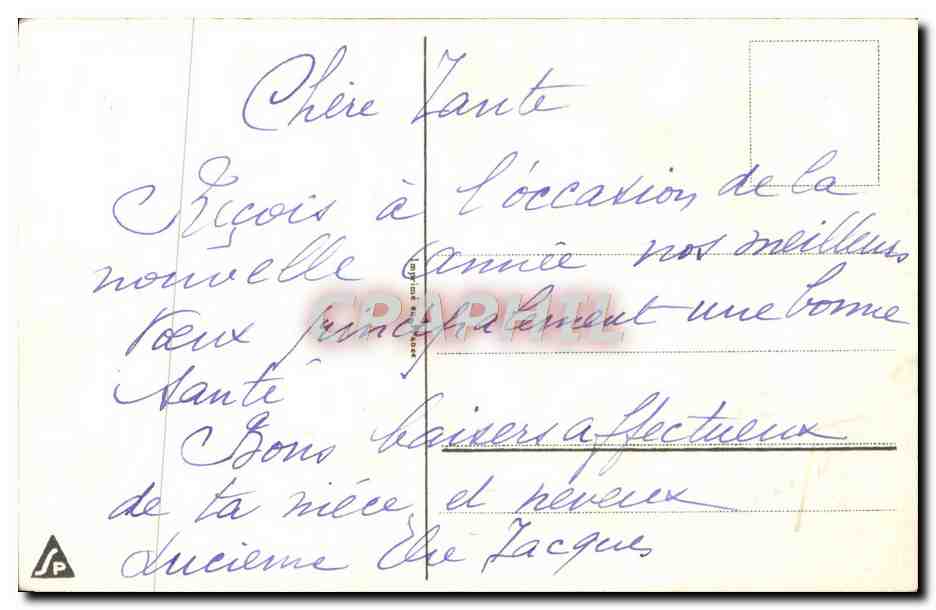 Chère Tante
Reçois à l'occasion de la
nouvelle année nos meilleurs
vœux principalement une bonne
santé
Bons baisers affectueux
de ta nièce et neveux
Lucienne Elie Jacques
Imprimé en France
CPAPHIL
SP